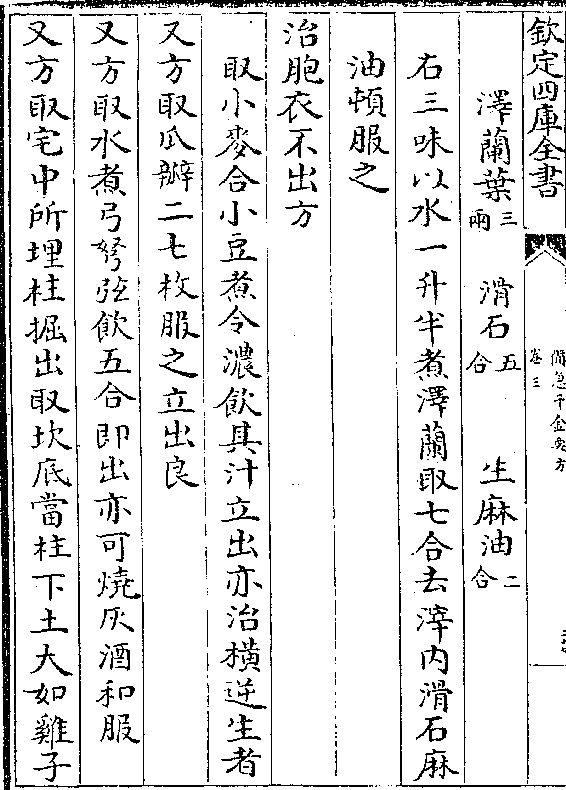 欽定四庫全書
備急千金要方
卷三
澤蘭葉三兩 滑石五合 生麻油二合
右三味以水一升半煮澤蘭取七合去滓内滑石麻
油頓服之
治胞衣不出方
取小麥合小豆煮令濃飲其汁立出亦治橫逆生者
又方取瓜瓣二七枚服之立出良
又方取水煮弓弩弦飲五合即出亦可燒灰酒和服
又方取宅中所埋柱掘出取坎底當柱下土大如雞子